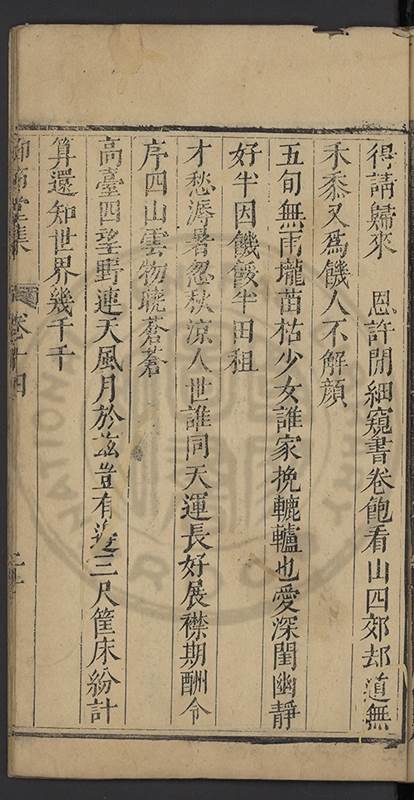 得請歸來　恩許閒細窺書卷飽看山四郊却道無
禾黍又爲饑人不解顏
五旬無雨壠苗枯少女誰家挽轆轤也愛深閨幽靜
好半因饑餒半田租
才愁溽暑忽秋涼人世誰同天運長好展襟期酬令
序四山雲物曉蒼蒼
高臺四望野連天風月於茲豈有邊三尺筐床紛計
算還知世界幾千千
堂集
卷十四